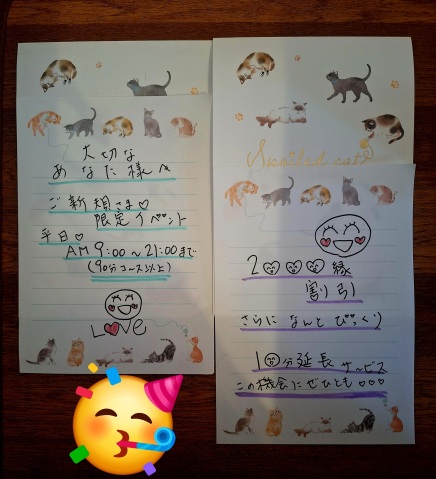 大切な
あなた様へ
ご新規さま♡
限定イベント
平日♡
AM9:00~21:00まで
(90分コース以上)
LOVe
Spoiled cats
2♡♡♡縁
割引
さらになんとびっくり
10分延長サービス
この機会にぜひとも♡♡♡